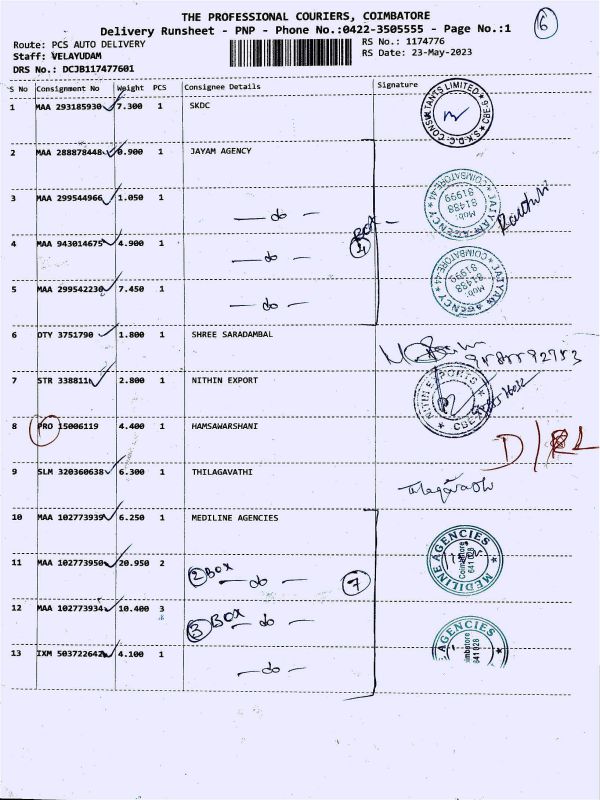 THE PROFESSIONAL COURIERS, COIMBATORE
6
Delivery Runsheet - PNP - Phone No.:0422-3505555 - Page No.:1
Route: PCS AUTO DELIVERY
RS No.: 1174776
Staff: VELAYUDAM
RS Date: 23-May-2023
DRS No.: DCJB117477601
S No Consignment No Weight PCS Consignee Details Signature
1 MAA 293185930 7.300 1 SKDC
S.K.D.C. CONSULTANTS LIMITED * CBE-9
2 MAA 288878448 0.900 1 JAYAM AGENCY
3 MAA 299544966 1.050 1
— do —
JAIYAM AGENCY COIMBATORE-44
Mob: 81438 81999
4 MAA 943014675 4.900 1
— do —
BOX 4
5 MAA 299542230 7.450 1
— do —
JAIYAM AGENCY COIMBATORE-44
Mob: 81438 81999
6 DTY 3751790 1.800 1 SHREE SARADAMBAL
7 STR 338811 2.800 1 NITHIN EXPORT
NITIN EXPORTS CBE
8 PRO 15006119 4.400 1 HAMSAWARSHANI
9 SLM 320360638 6.300 1 THILAGAVATHI
10 MAA 102773939 6.250 1 MEDILINE AGENCIES
MEDILINE AGENCIES Coimbatore 641 028
11 MAA 102773950 20.950 2
2 BOX — do — 7
12 MAA 102773934 10.400 3
3 BOX — do —
AGENCIES
641 028
13 IXM 503722642 4.100 1
— do —